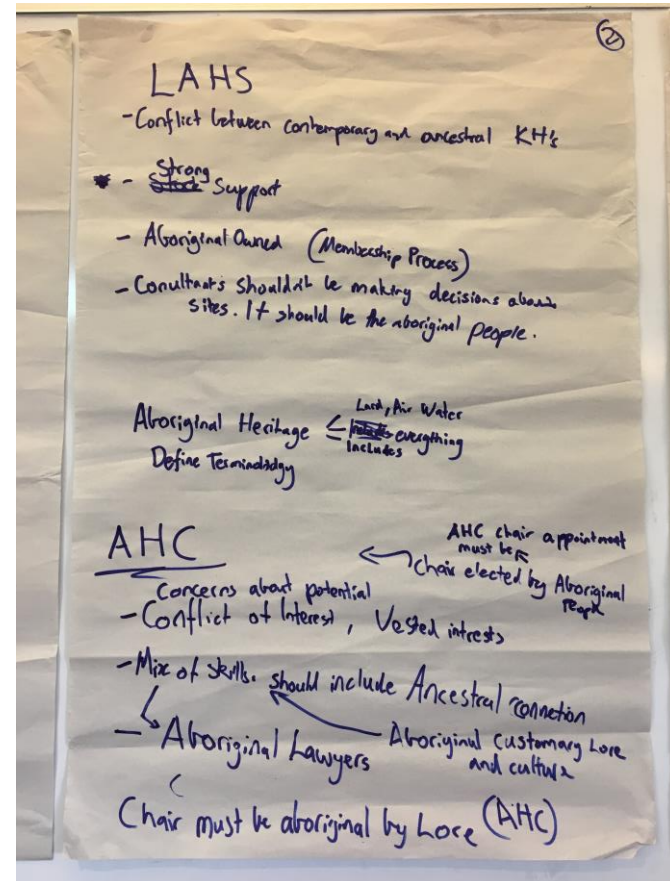 2
LAHS
- Conflict between contemporary and ancestral KH's
Strong
- Support
- Aboriginal Owned (Membership Process)
- Conultants shouldn't be making decisions about
sites. It should be the aboriginal people.
Land, Air Water
Aboriginal Heritage everything
Includes
Define Terminology
AHC chair appointment
must be
AHC
Chair elected by Aboriginal
People
Concerns about potential
- Conflict of Interest, Vested intrests
- Mix of skills. should include Ancestral connetion
- Aboriginal Lawyers
Aboriginal Customary Lore
and culture
Chair must be aboriginal by Lore (AHC)